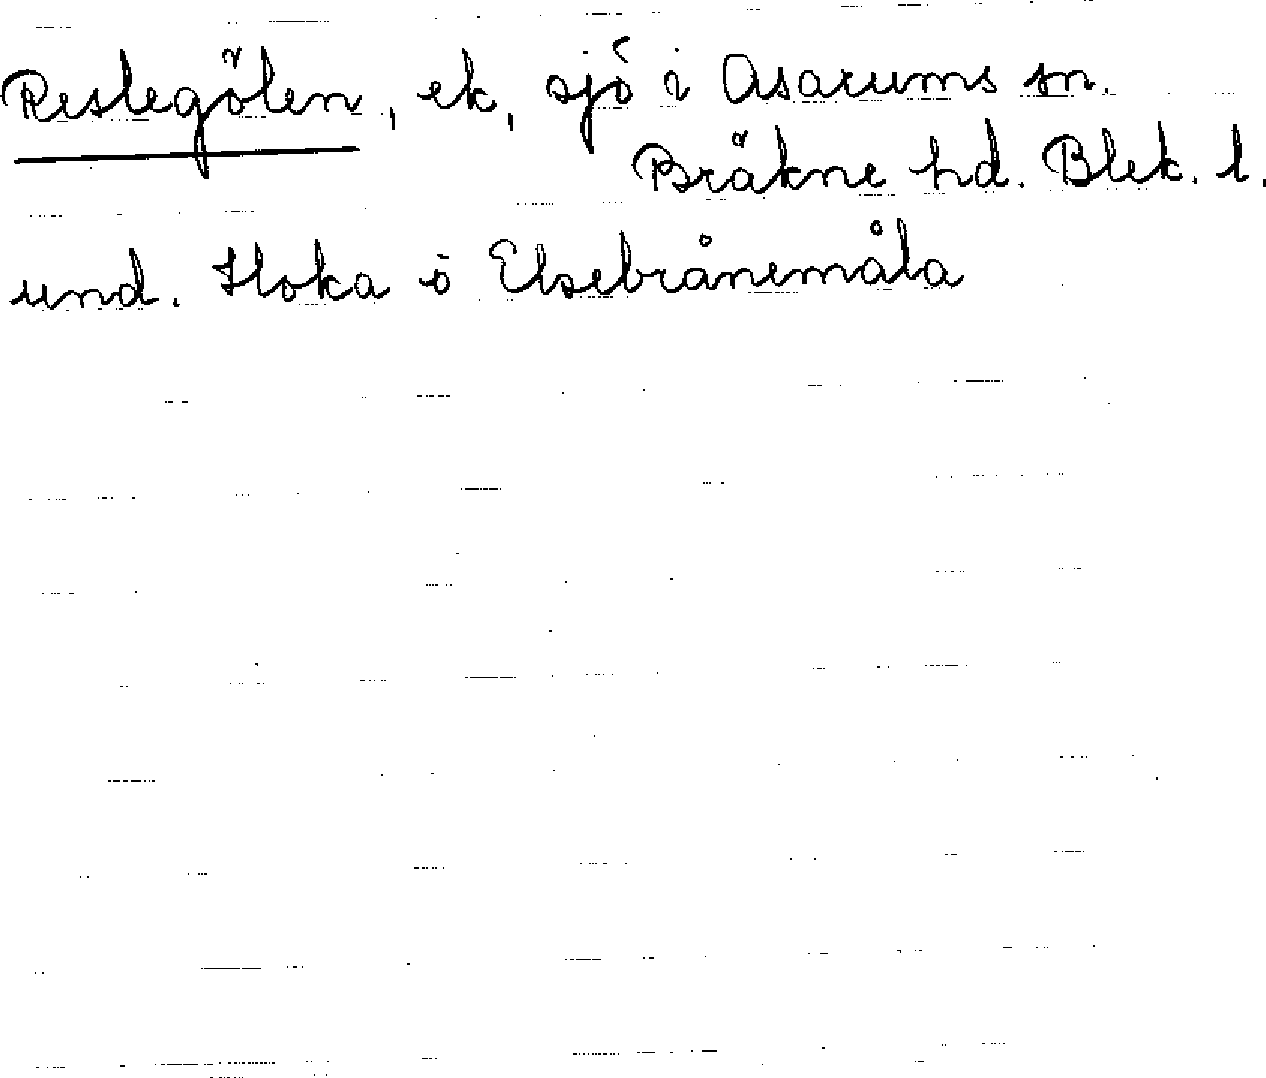 Reslegölen, ek, sjö i Asarums sn.
Bräkne hd. Blek. l.
und. Hoka o Elsebrånemåla